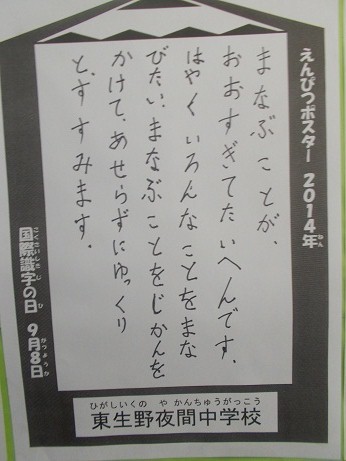 えんぴつポスター 2014年
ねん
まなぶ ことが、
おおすぎてたいへんです.
はやく いろんな ことをまな
びたい.まなぶ ことをじかんを
かけて、あせらずにゆっくり
と、すすみます.
こくさいしきじ ひ
国際識字の日 9月8日
がつようか
ひがしいくの や かんちゅうがっこう
東生野夜間中学校